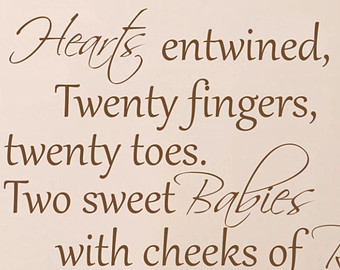 Hearts entwined,
Twenty fingers,
twenty toes.
Two sweet Babies
with cheeks of